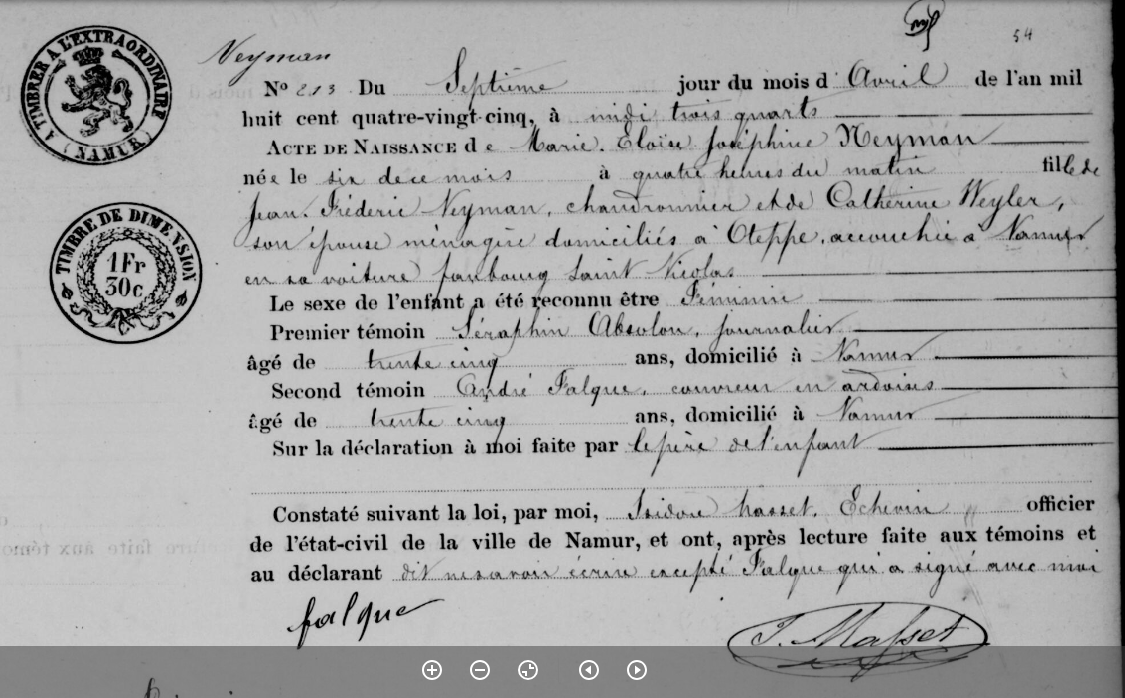 54
A TIMBRER A L'EXTRAORDINAIRE
(NAMUR)
Neyman
N° 213 Du Septième jour du mois d'Avril de l'an mil
huit cent quatre-vingt-cinq, à midi trois quarts
ACTE DE NAISSANCE de Marie Eloïse Joséphine Neyman
née le six de ce mois à quatre heures du matin fille de
Jean Fréderic Neyman, chaudronnier et de Catherine Weyler,
son épouse ménagère domiciliés à Oteppe, accouchée à Namur
en sa voiture faubourg Saint Nicolas
TIMBRE DE DIMENSION
1 Fr
30c
Le sexe de l'enfant a été reconnu être Féminin
Premier témoin Séraphin Absolon, journalier
âgé de trente cinq ans, domicilié à Namur
Second témoin André Falque, couvreur en ardoises
âgé de trente cinq ans, domicilié à Namur
Sur la déclaration à moi faite par le père de l'enfant
Constaté suivant la loi, par moi, Isidore Masset, Echevin officier
de l'état-civil de la ville de Namur, et ont, après lecture faite aux témoins et
au déclarant dit ne savoir écrire excepté Falque qui a signé avec moi
falque
J. Masset